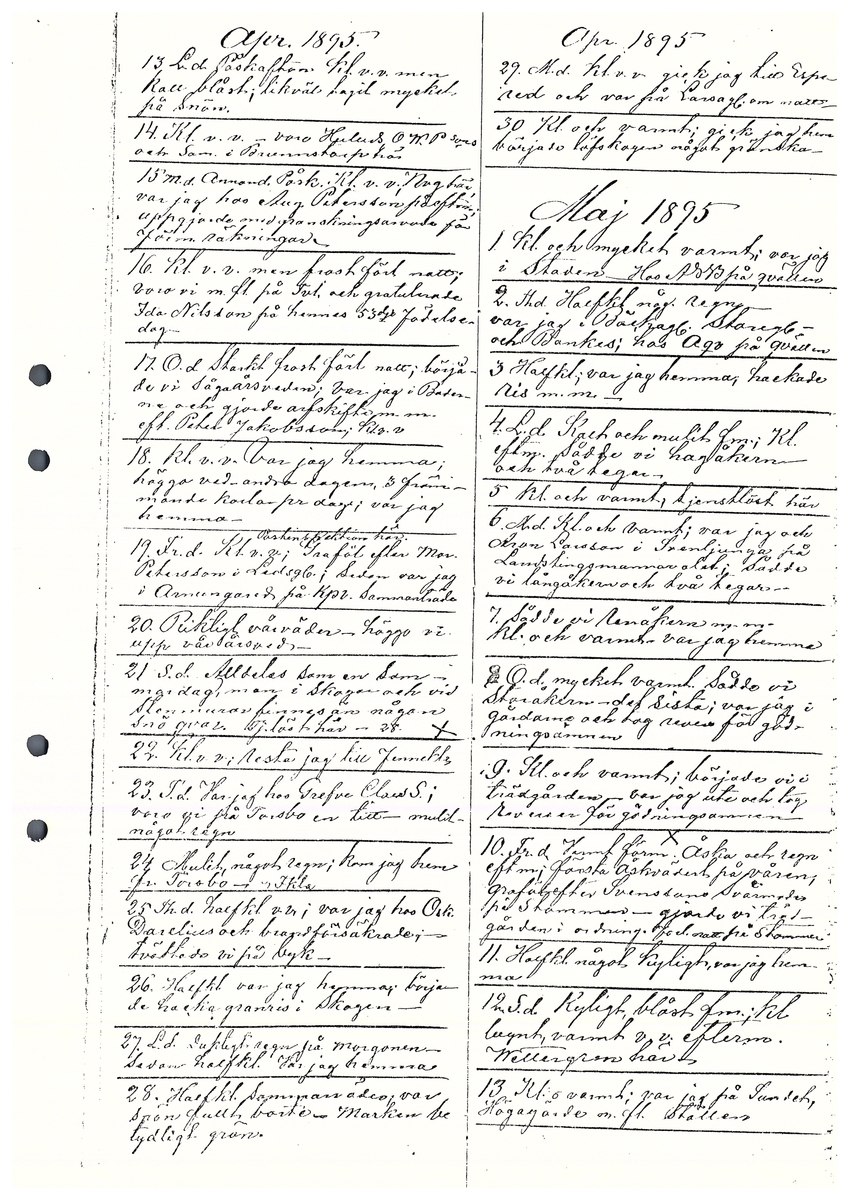 Apr. 1895.
13 L.d. Påskafton Kl. v.v. men
kall blåst; likväl tagit mycket
på snön.
14. Kl. v. v. – voro
och Sam. i Brunnstorp här
15 Md. Annand. Påsk. Kl. v. v.
var jag hos Aug Petersson
uppgjorde med granskningsarvode för
räkningar
16. Kl. v. v. men frost förl natt;
voro vi m. fl. på och gratulerade
Ida Nilsson på hennes 53dje födelse-
dag
17. O.d Starkt frost förl natt; börja-
de vi såga årsveden; var jag i
och gjorde arfskifte m.m.
eft. Peter Jakobsson; kl. v. v
18. Kl. v. v. Var jag hemma;
höggo ved andra dagen, 3 främ-
mande karlar pr dag; var jag
hemma –
här.
19. Fr. d. Kl v. v;
Petersson i sedan var jag
i Arnungared på Kpv. Sammanträde
20. Riktigt vårväder – höggo vi
upp vår årsved –
21 S.d. Alldeles som en Som-
mardag, men i skogen och vid
Stenmurar finnes än någon
snö qvar. Tj.löst här –
22. Kl. v v; resta jag till
23. T.d. Var jag hos Grefve Claes S.;
voro vi på Torsbo en titt – mulit
något regn
24 Mulit, något regn; kom jag hem
fr. Torsbo –
25 Th.d. halfkl v v; var jag hos Osk.
Darelius och brandförsäkrade; –
tvättade vi på byk –
26. Halfkl var jag hemma; börja-
de hacka granris i skogen –
27. L.d. regn på morgonen –
sedan halfkl. Var jag hemma
28. Halfkl Sommarväder, var
snön fullt borte – Marken be
tydligt grön.
Apr. 1895
29. M.d. Kl. v. v gick jag till Espe-
red och var på Larsagb. om natten
30 Kl. och varmt; gick jag hem
började löfskogen något grönska –
Maj 1895
1. Kl. och mycket varmt; var jag
i Staden Hos på qvällen
2. Th.d Halfkl någ. regn
var jag i Bäckagb. Storegb –
och Bankes; hos på qvällen
3 Halfkl; var jag hemma, hackade
ris m.m. –
4. L.d. Kallt och mulit fm.; Kl.
eftm. Sådde vi hagåkern –
och två tegar –
5 Kl. och varmt, tjenstlöst här
6. M.d. Kl. och varmt; var jag och
Aron Larsson i Svenljunga på
Landstingsmannavalet; Sådde
vi långåkern och två tegar –
7. Sådde vi renåkern m.m.
Kl. och varmt – var jag hemma
8 O.d. mycket varmt. Sådde vi
Storåkern – det sista; var jag i
gårdarne och tog revers för göd-
ningsämnen
9. Kl. och varmt; började vi i
trädgården – var jag ute och tog
reverser för gödningsämnen –
10. Fr. d. Varmt förm. Åska och regn
eftm; första åskvädret på våren;
graföl efter Svenssons Svärmoder
på Stommen – gjorde vi träd-
gården i ordning. natt på Stommen
11. Halfkl. något kyligt, var jag hem-
ma
12. S.d. Kyligt, blåst fm.; kl
lugnt, varmt v. v. efterm.
Wettergren här –
13 Kl. o varmt; var jag på Sundet,
Högagärde m. fl. ställen